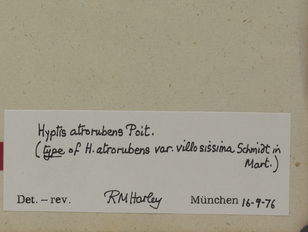 Hyptis atrorubens Poit.
(type of H. atrorubens var. villosissima Schmidt in
Mart.)
Det. – rev. RMHarley München 16-9-76